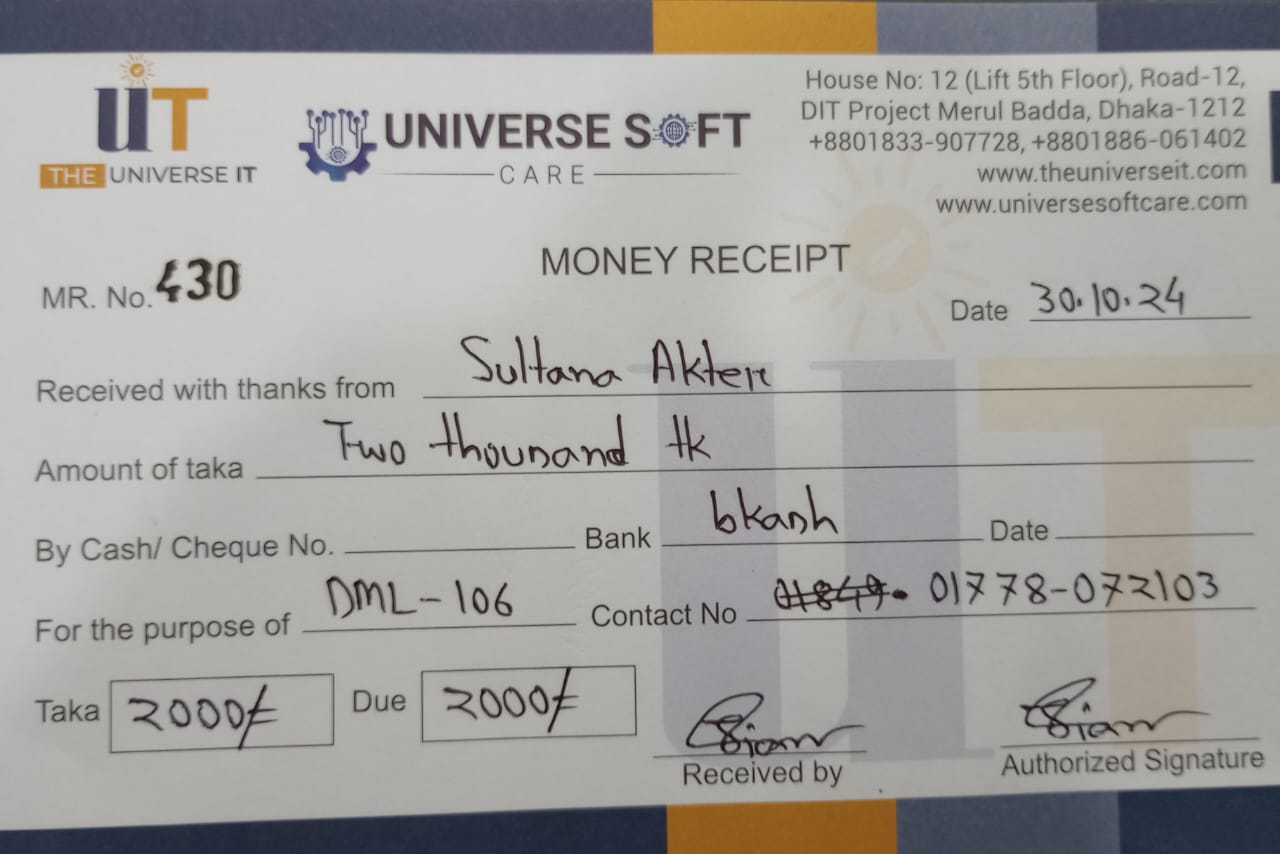 UiT
THE UNIVERSE IT
UNIVERSE SOFT
CARE
House No: 12 (Lift 5th Floor), Road-12,
DIT Project Merul Badda, Dhaka-1212
+8801833-907728, +8801886-061402
www.theuniverseit.com
www.universesoftcare.com
MONEY RECEIPT
MR. No. 430
Date 30.10.24
Received with thanks from Sultana Akter
Amount of taka Two thousand tk
By Cash/ Cheque No. Bank bkash Date
For the purpose of DML-106 Contact No 01778-072103
Taka 2000/= Due 2000/=
Received by
Authorized Signature